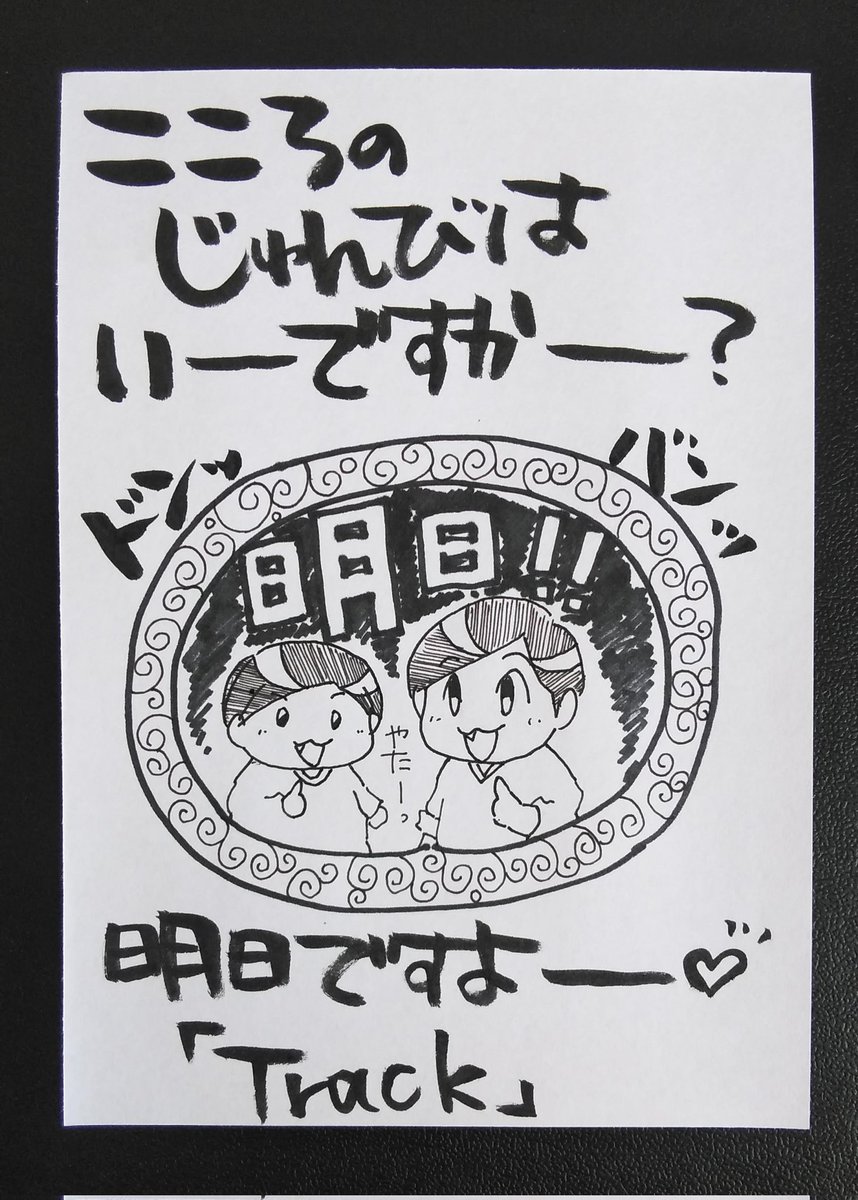 こころの
じゅんびは
いーですかー?
ドンッ
バンッ
明日!!
やたーっ
明日ですよー♡
「Track」